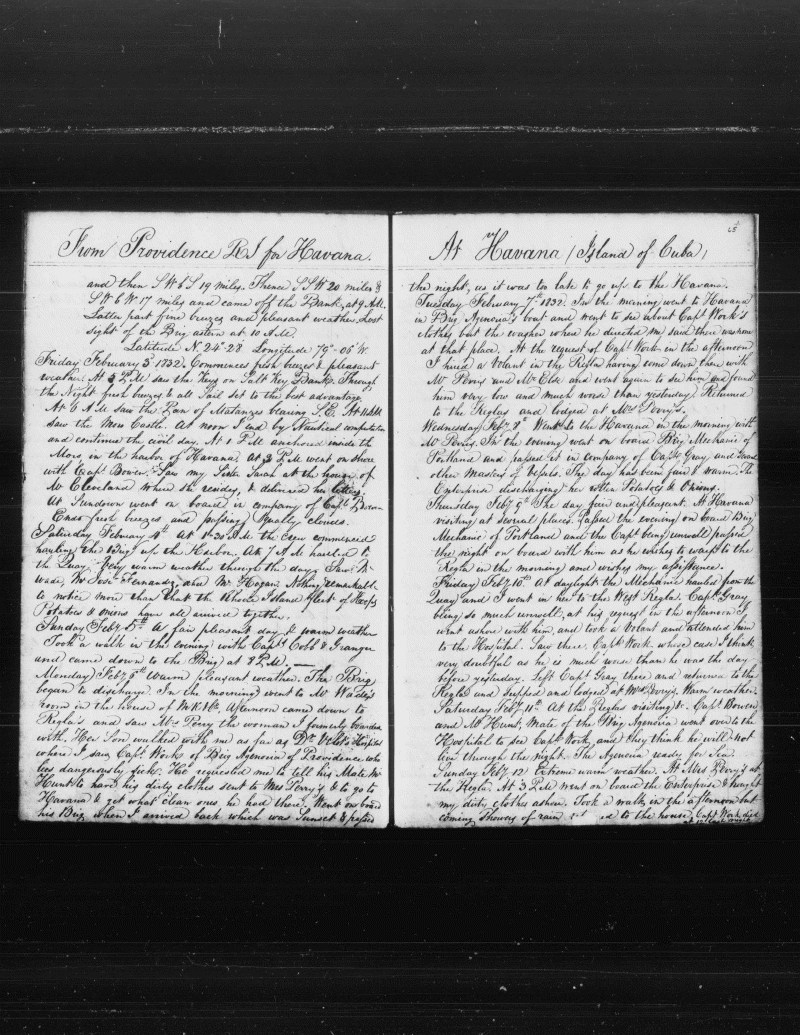 From Providence R I for Havana.
and then S W b S 19 miles. Thence S S W 20 miles &
S W b W 17 miles and came off the Bank, at 9 A.M.
Latter part fine breezes and pleasant weather. Lost
sight of the Brig astern at 10 A M.
Latitude N. 24°-28 Longitude 79°-06' W.
Friday February 3 1832. Commences fresh breezes & pleasant
weather. At 2 P M saw the Keys on Salt Key Bank. Through
the Night fresh breezes & all Sail set to the best advantage.
At 6 A M saw the Pan of Matanzas bearing S.E. At
saw the Moro Castle. At noon I end by Nautical computation
and continue the civil day. At 1 P M anchored inside the
Moro in the harbor of Havana. At 3 P M went on shore
with Capt Bowen. Saw my Sister Susan at the house of
Mr Cleveland where she resides, & delivered her letters.
At Sundown went on board in company of Capt Bowen
Ends fresh breezes and passing Squally clouds.
Saturday February 4th At 1-30 A M the Crew commenced
hauling the Brig up the Harbor. At 7 A M hauled to
the Quay. Very warm weather through the day. Saw Mr
Wade, Mr Jose Fernandz, and Mr Hogan. Nothing remarkable
to notice more than that the Rhode Island fleet of Hoops
Potatoes & onions have all arrived together.
Sunday Feby 5th A fair pleasant day & warm weather
Took a walk in the evening with Capts Cobb & Granger
and came down to the Brig at 8 P M.
Monday Feby 6th Warm pleasant weather. The Brig
began to discharge. In the morning went to Mr Wade's
room in the house of Afternoon came down to
Regla's and saw Mrs Perry the woman I formerly boarded
with. Her Son walked with me as far as Dr Hospital
where I saw Capt Work of Brig Agenoria of Providence who
lies dangerously sick. He requested me to tell his Mate Mr
Hunt to have his dirty clothes sent to Mrs Perry's & to go to
Havana & get what clean ones he had there. Went on board
his Brig when I arrived back which was Sunset & passed
65
At Havana (Island of Cuba)
the night, as it was too late to go up to the Havana.
Tuesday February 7th 1832. In the morning went to Havana
in Brig Agenoria's boat and went to see about Capt Work's
clothes but the washer where he directed me said there was none
at that place. At the request of Capt Work in the afternoon
I hired a Volant in the Regla having come down there with
Mr Perry and Mr Else and went again to see him and found
him very low and much worse than yesterday. Returned
to the Reglas and lodged at Mrs Perry's.
Wednesday Feby 8th Went to the Havana in the morning with
Mr Perry. In the evening went on board Brig Mechanic of
Portland and passed it in company of Capts Gray and
other Masters of Vessels. The day has been fair & warm. The
Enterprise discharging her rotten Potatoes & Onions.
Thursday Feby 9th The day fair and pleasant. At Havana
visiting at several places. Passed the evening on board Brig
Mechanic of Portland and the Capt being unwell passed
the night on board with him as he wishes to warp to the
Regla in the morning and wishes my assistance.
Friday Feby 10th At daylight the Mechanic hauled from the
Quay and I went in her to the West Regla. Capt Gray
being so much unwell, at his request in the afternoon I
went ashore with him, and took a Volant and attended him
to the Hospital. Saw there, Capt Work whose case I think
very doubtful as he is much worse than he was the day
before yesterday. Left Capt Gray there and returned to the
Reglas and supped and lodged at Mrs Perry's. Warm weather.
Saturday Feby 11th At the Reglas visiting &c. Capt Bowen
and Mr Hunt, Mate of the Brig Agenoria went over to the
Hospital to see Capt Work, and they think he will not
live through the night. The Agenoria ready for Sea.
Sunday Feby 12 Extreme warm weather. At Mrs Perry's at
the Regla. At 3 P M went on board the Enterprise & brought
my dirty clothes ashore. Took a walk in the afternoon but
coming showers of rain to the house. Capt Work died